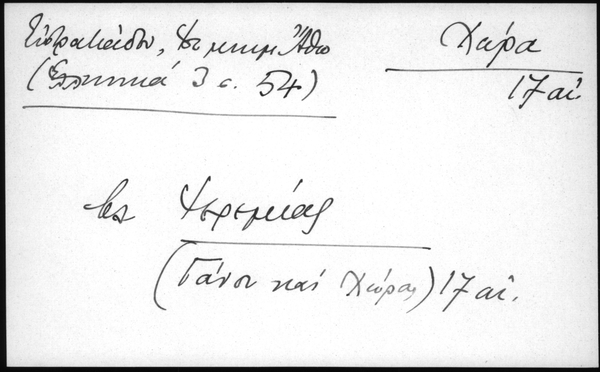 Εὐστρατιάδου, Ἱερ μνημ Ἄθω
(Ἑλληνικά 3 σ. 54)
Χώρα
17 αἰ
Ἱερεμίας
(Γάνου καὶ Χώρας) 17 αἰ.